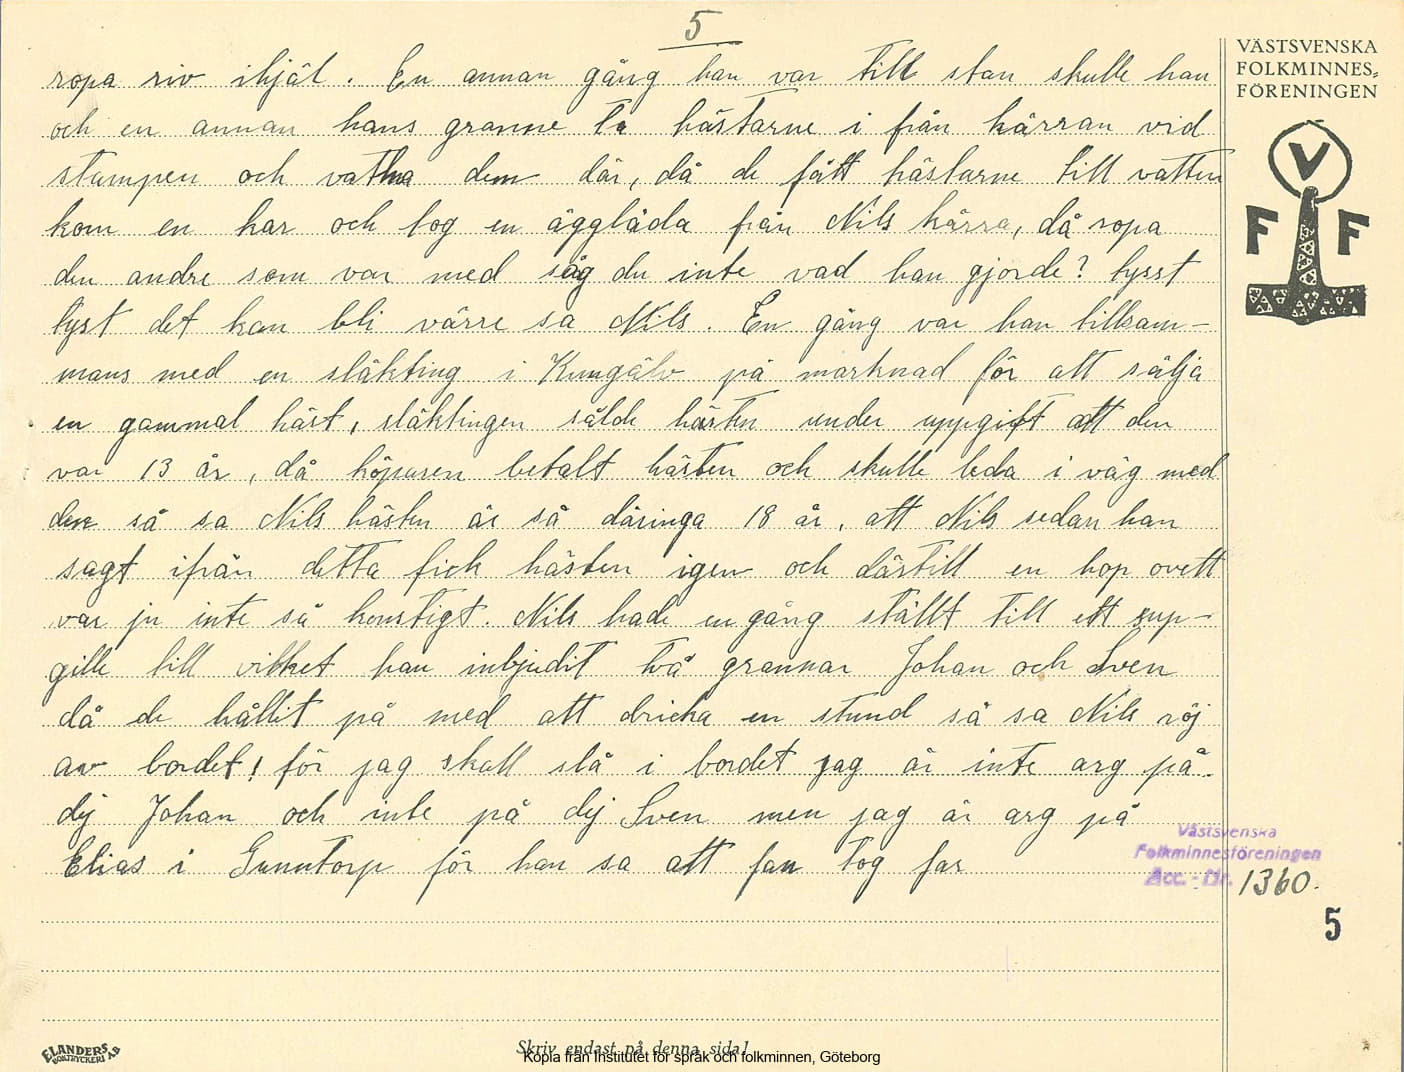 5
VÄSTSVENSKA
FOLKMINNES-
FÖRENINGEN
V
F F
ropa riv ihjäl. En annan gång han var till stan skulle han
och en annan hans granne ta hästarne i från kärran vid
stampen och vattna dem där, då de fått hästarne till vatten
kom en kar och tog en ägglåda från Nils kärra, då ropa
den andre som var med såg du inte vad han gjorde? tysst
tyst det kan bli värre sa Nils. En gång var han tillsam-
mans med en släkting i Kungälv på marknad för att sälja
en gammal häst, släktingen sålde hästen under uppgift att den
var 13 år, då köparen betalt hästen och skulle leda i väg med
den så sa Nils hästen är så däringa 18 år, att Nils sedan han
sagt ifrån detta fick hästen igen och därtill en hop ovett
var ju inte så konstigt. Nils hade en gång ställt till ett sup-
gille till vilket han inbjudit två grannar Johan och Sven
då de hållit på med att dricka en stund så sa Nils röj
av bordet! för jag skall slå i bordet jag är inte arg på
dej Johan och inte på dej Sven men jag är arg på
Elias i Gunntorp för han sa att fan tog far
Västsvenska
Folkminnesföreningen
Acc. - Nr. 1360.
5
ELANDERS
BOKTRYCKERI AB
Skriv endast på denna sida!
Kopia från Institutet för språk och folkminnen, Göteborg